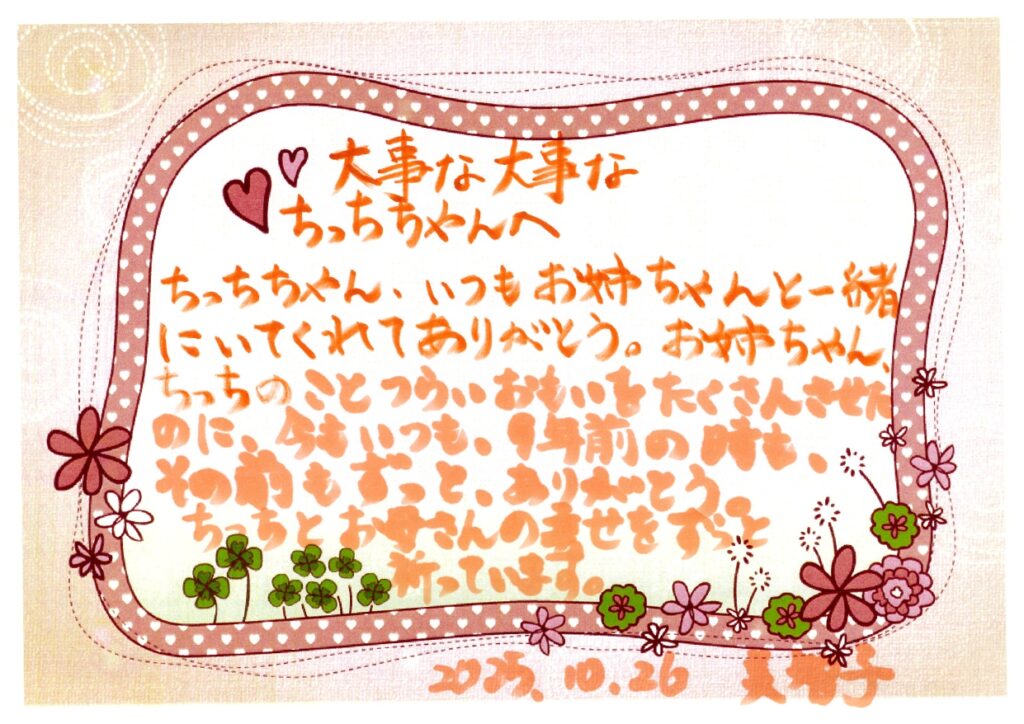 大事な大事な
ちっちちゃんへ
ちっちちゃん、いつもお姉ちゃんと一緒
にいてくれてありがとう。お姉ちゃん、
ちっちのことつらいおもいをたくさんさせた
のに、今もいつも、9年前の時も、
その前もずっと、ありがとう。
ちっちとお母さんの幸せをずっと
祈っています。
2025.10.26